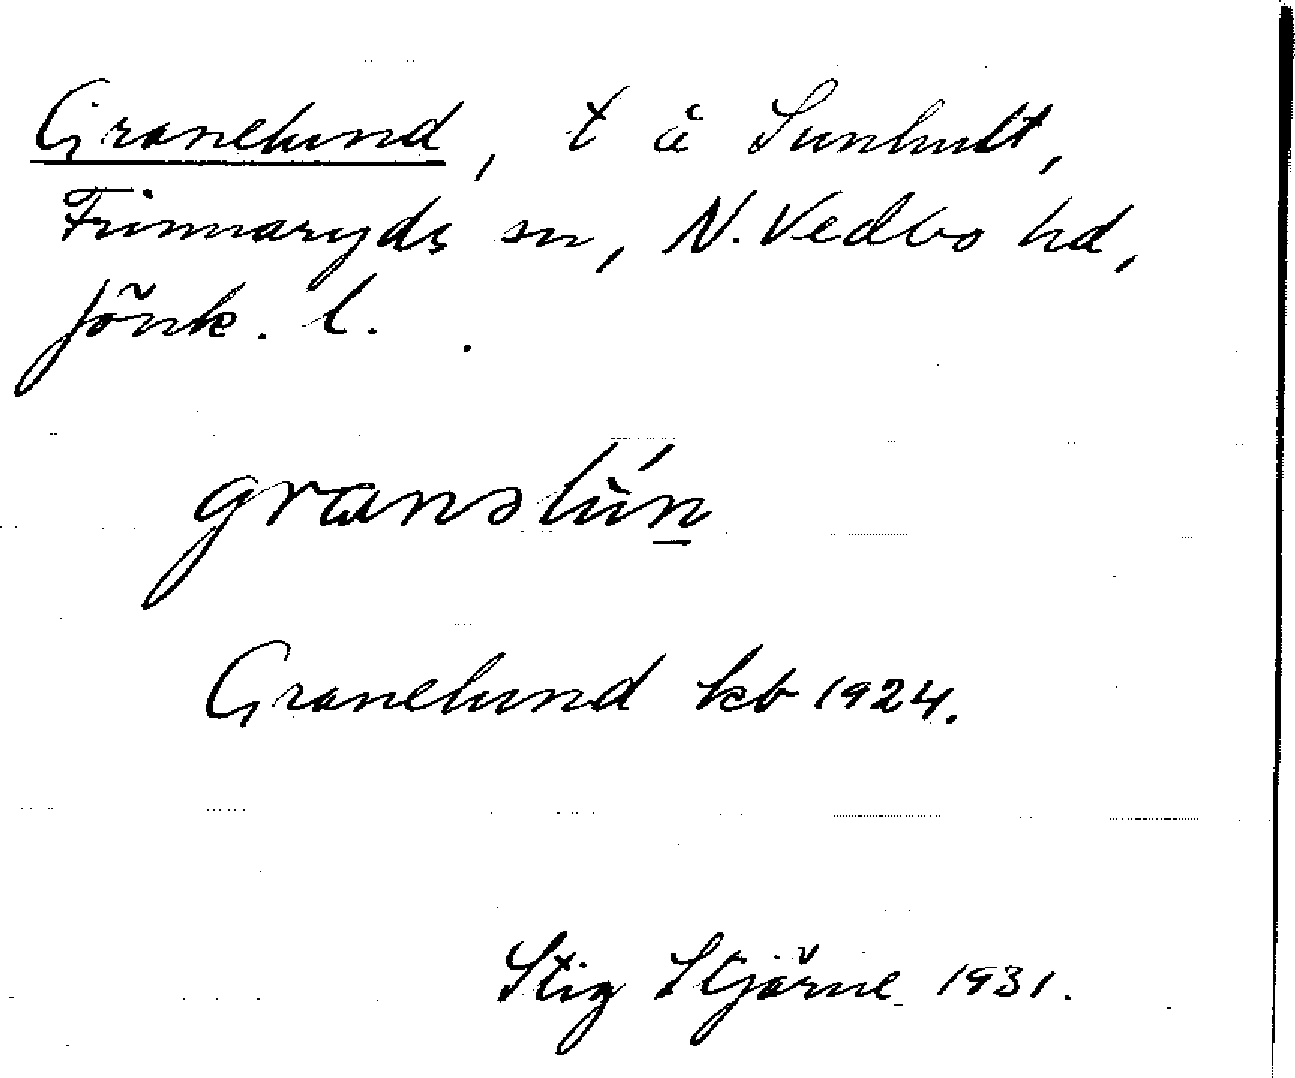 Granelund, t å Sunhult,
Finnaryds sn, N. Vedbo hd,
Jönk. l.
granəlùń
Granelund kb 1924.
Stig Stjärne 1931.